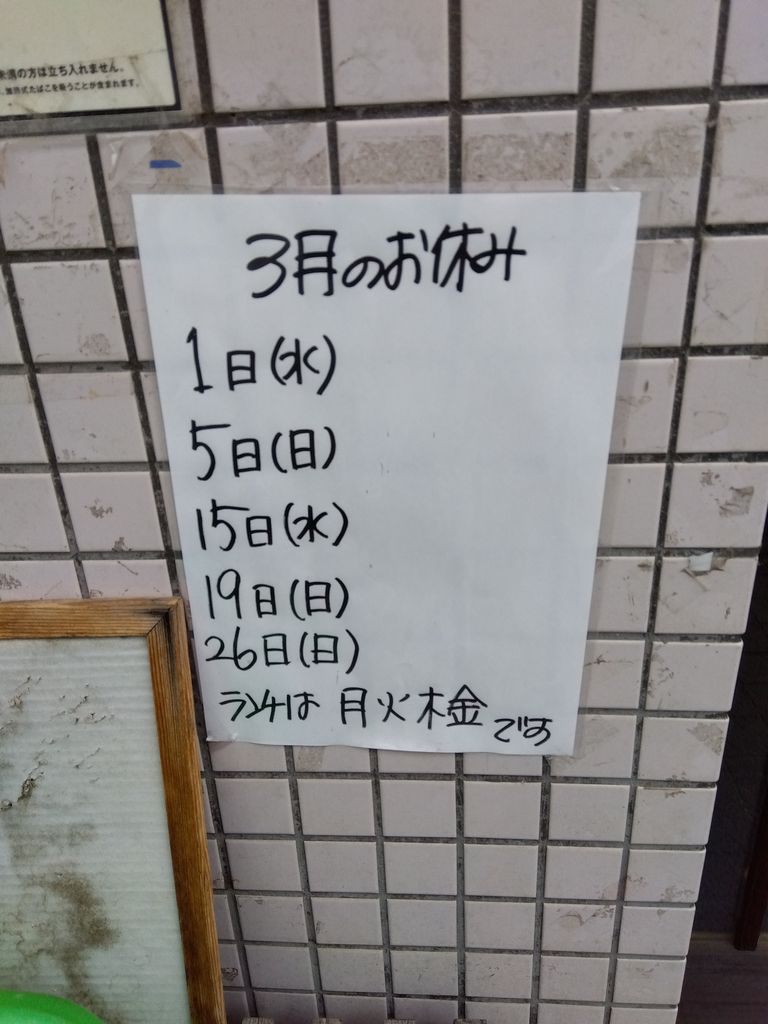 未満の方は立ち入れません。
加熱式たばこを吸うことが含まれます。
3月のお休み
1日(水)
5日(日)
15日(水)
19日(日)
26日(日)
ランチは 月火木金 です